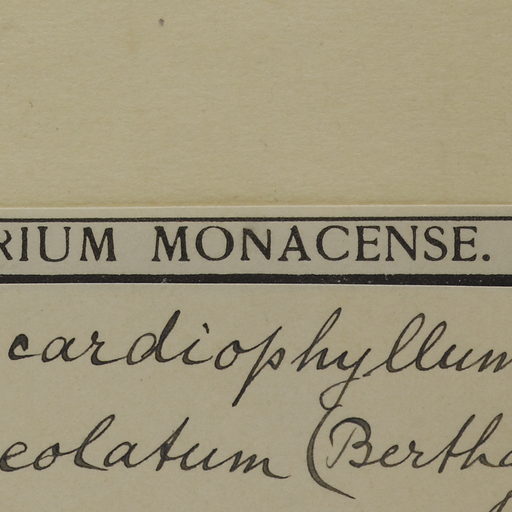 RIUM MONACENSE.
cardiophyllum
eolatum (Bertha